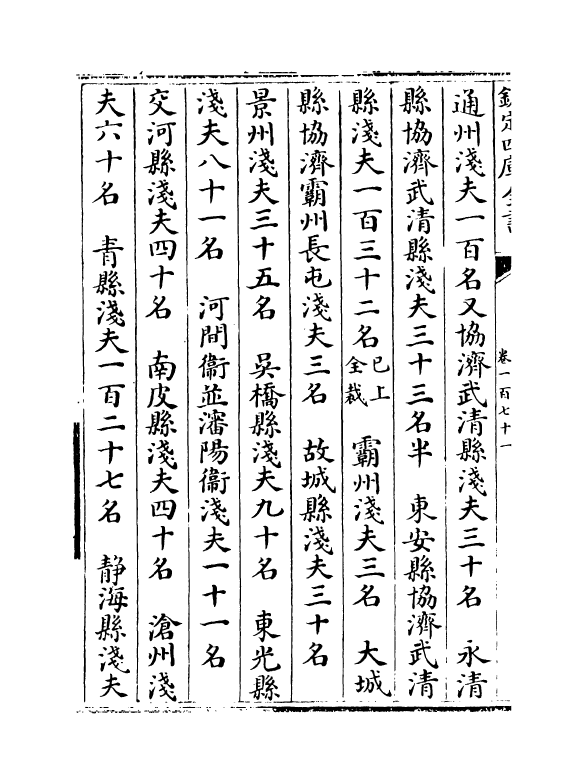 欽定四庫全書
卷一百七十一
通州淺夫一百名又協濟武清縣淺夫三十名　永清
縣協濟武清縣淺夫三十三名半　東安縣協濟武清
縣淺夫一百三十二名已上全裁　霸州淺夫三名　大城
縣協濟霸州長屯淺夫三名　故城縣淺夫三十名
景州淺夫三十五名　吳橋縣淺夫九十名　東光縣
淺夫八十一名　河間衞並瀋陽衞淺夫一十一名
交河縣淺夫四十名　南皮縣淺夫四十名　滄州淺
夫六十名　青縣淺夫一百二十七名　静海縣淺夫